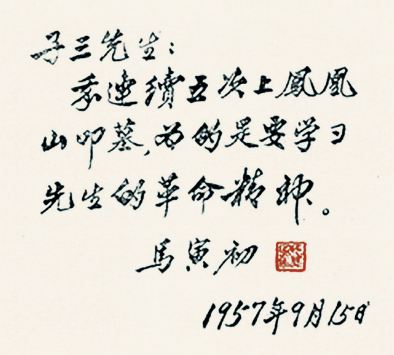 子三先生：
我連續五次上鳳凰
山叩墓，为的是要学习
先生的革命精神。
馬寅初
1957年9月15日